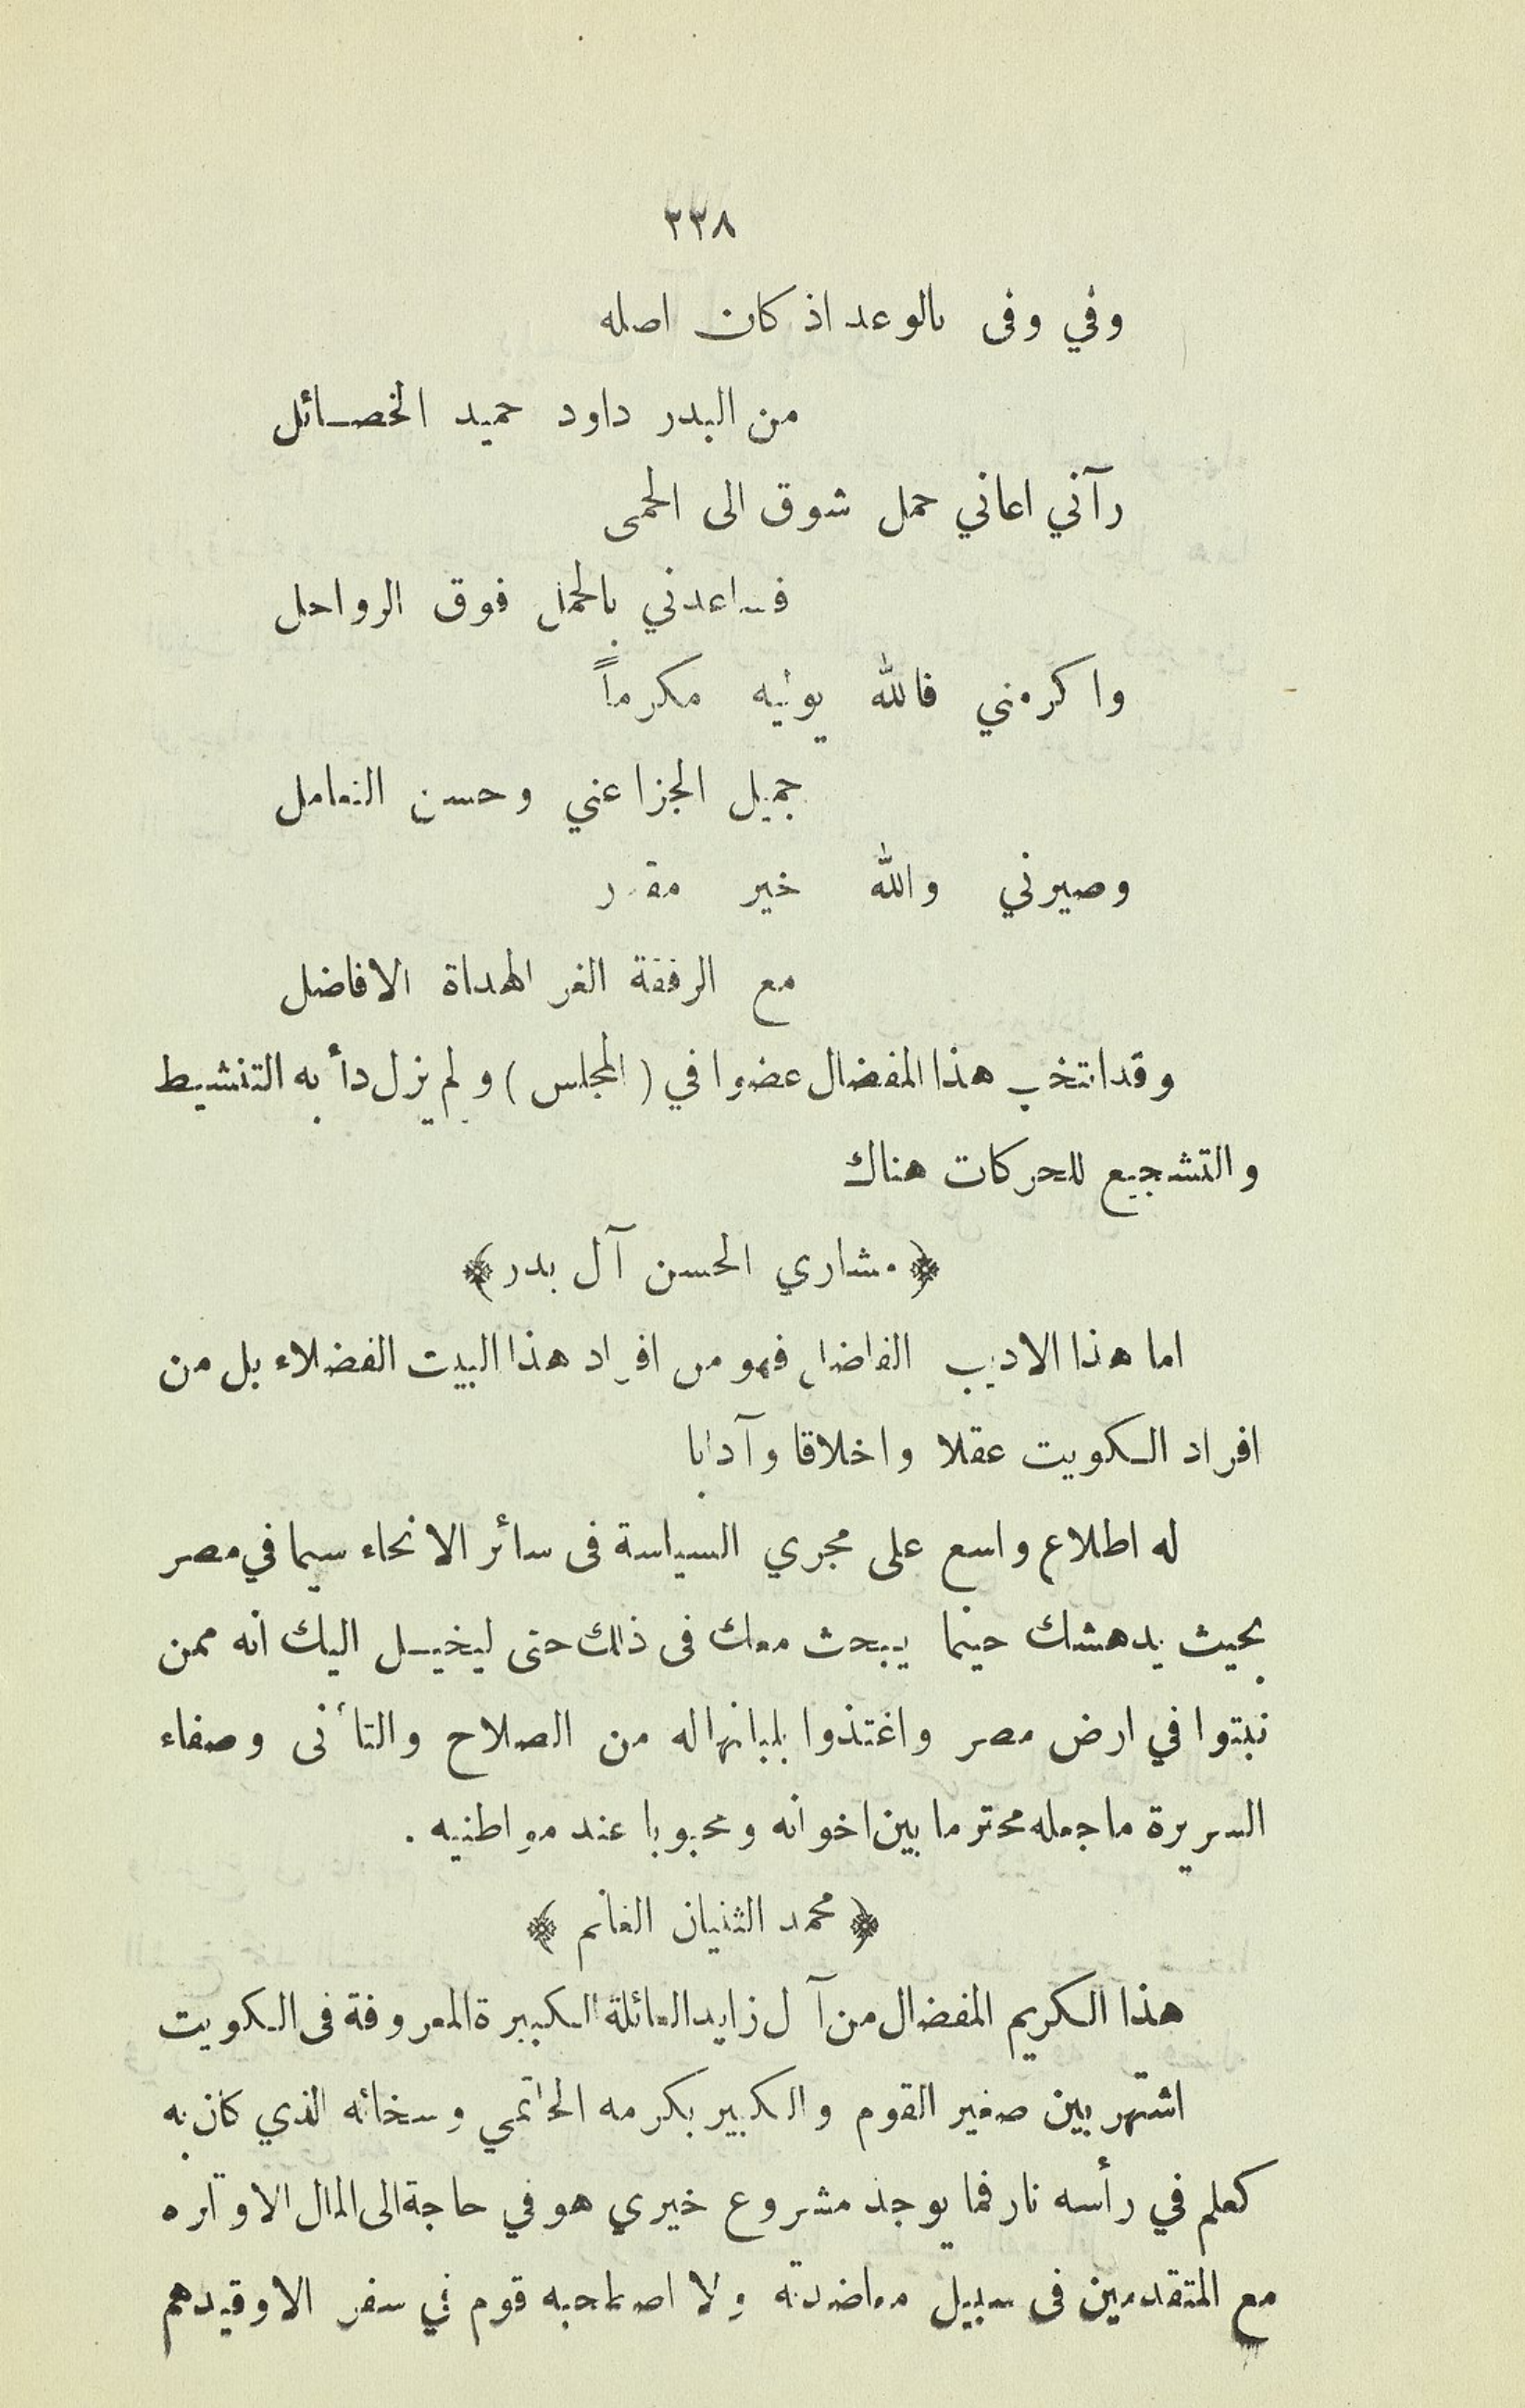 ٣٣٨
وفي وفى بالوعد اذ كان اصله
من البدر داود حميد الخصائل
رآني اعاني حمل شوق الى الحمى
فساعدني بالحمل فوق الرواحل
واكرمني فالله يوليه مكرماً
جميل الجزا عني وحسن التعامل
وصيرني والله خير مقدر
مع الرفقة الغر الهداة الافاضل
وقد انتخب هذا المفضال عضوا في (المجلس) ولم يزل دأبه التنشيط
والتشجيع للحركات هناك
﴿مشاري الحسن آل بدر﴾
اما هذا الاديب الفاضل فهو من افراد هذا البيت الفضلاء بل من
افراد الكويت عقلا واخلاقا وآدابا
له اطلاع واسع على مجري السياسة فى سائر الانحاء سيما في مصر
بحيث يدهشك حينما يبحث معك فى ذلك حتى ليخيل اليك انه ممن
نبتوا في ارض مصر واغتذوا بلبانها له من الصلاح والتأنى وصفاء
السريرة ما جعله محترما بين اخوانه ومحبوبا عند مواطنيه .
﴿محمد الثنيان الغانم﴾
هذا الكريم المفضال من آل زايد العائلة الكبيرة المعروفة فى الكويت
اشتهر بين صغير القوم والكبير بكرمه الحاتمي وسخائه الذي كان به
كعلم في رأسه نار فما يوجد مشروع خيري هو في حاجة الى المال الا وتره
مع المتقدمين فى سبيل معاضدته ولا اصطاحبه قوم في سفر الا وقيدهم